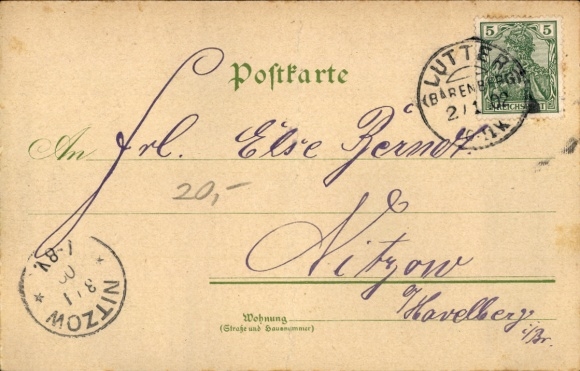 5
REICHSPOST
LUTTER
(BARENBERG)
2/1 02
Postkarte
An Frl. Else Berndt
20,-
Nitzow
Havelberg
i/Br.
NITZOW
3/1
7-8V
Wohnung
(Straße und Hausnummer)